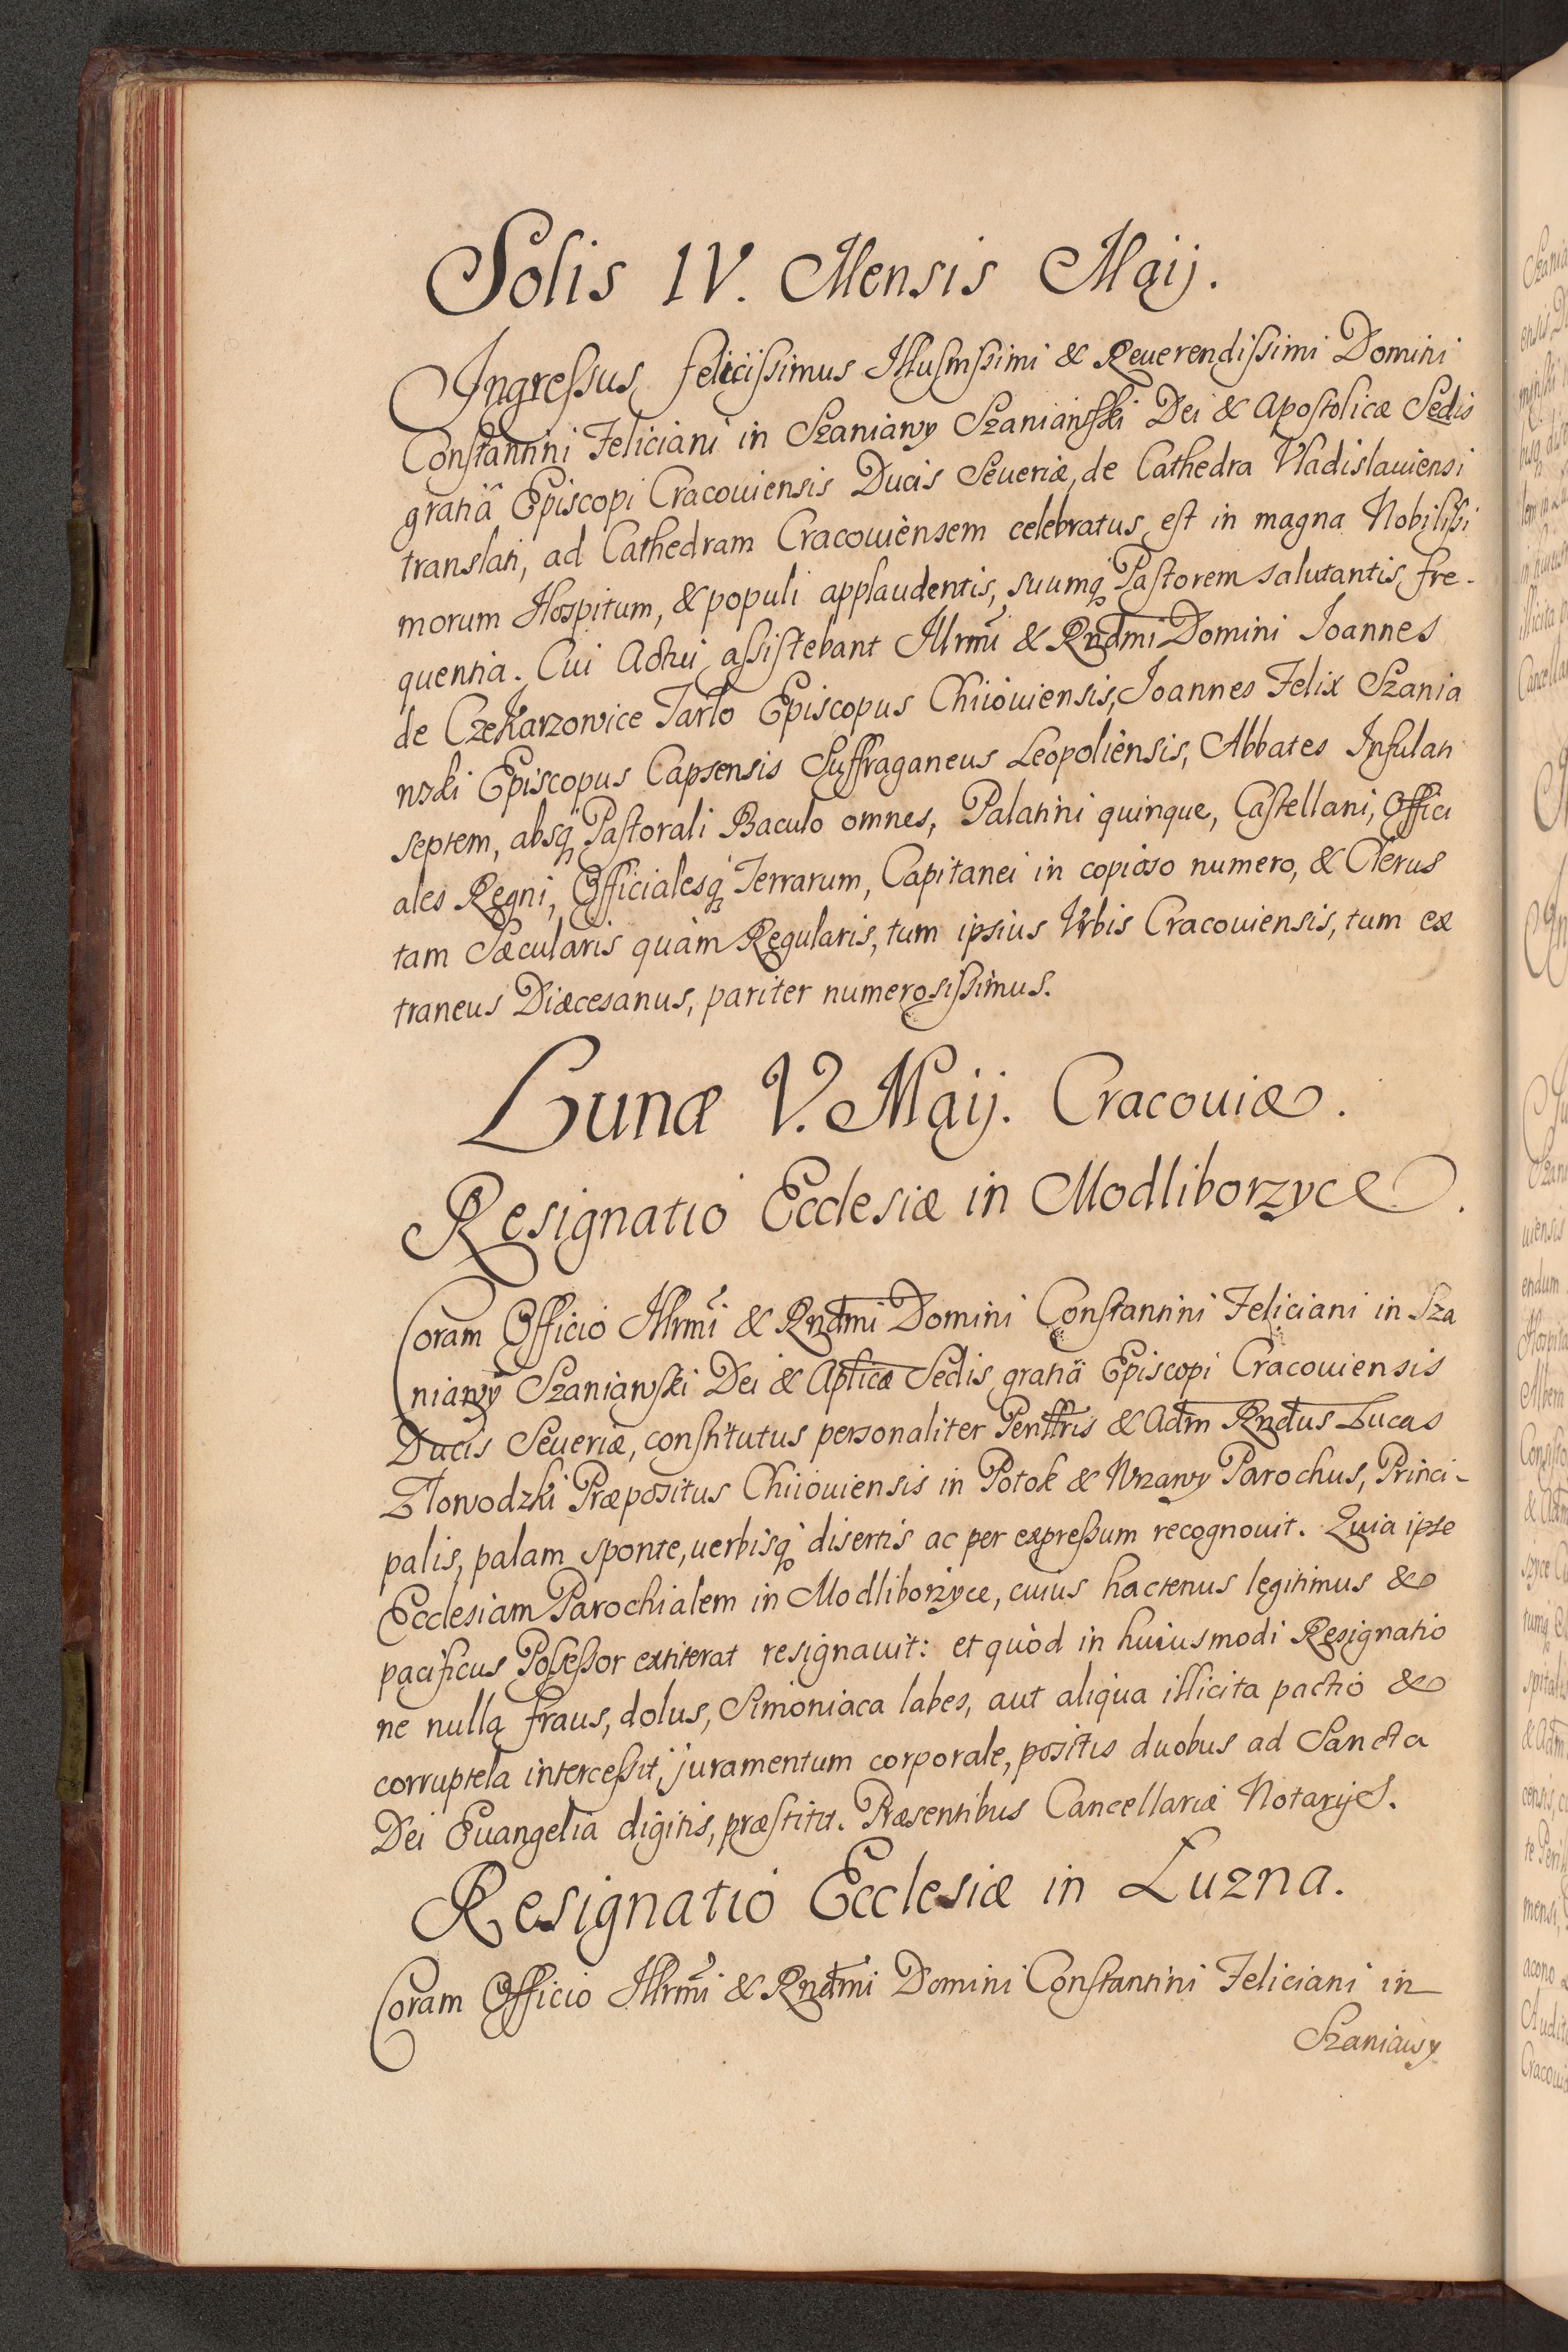 Solis IV. Mensis Maij.
Ingressus felicissimus Illusmssimi & Reuerendissimi Domini
Constantini Feliciani in Szaniawy Szaniawski Dei & Apostolicæ Sedis
gratiâ Episcopi Cracouiensis Ducis Seueriæ, de Cathedra Vladislauiensi
translati, ad Cathedram Cracouiensem celebratus est in magna Nobilissi
morum Hospitum, & populi applaudentis, suumq; Pastorem salutantis, fre-
quentia. Cui Actui assistebant Illrmi & Rndmi Domini Joannes
de Czekarzowice Tarło Episcopus Chiiouiensis, Joannes Felix Szania
wski Episcopus Capsensis Suffraganeus Leopoliensis, Abbates Infulati
septem, absq; Pastorali Baculo omnes, Palatini quinque, Castellani, Offici
ales Regni, Officialesq; Terrarum, Capitanei in copioso numero, & Clerus
tam Sæcularis quàm Regularis, tum ipsius Vrbis Cracouiensis, tum ex
traneus Diæcesanus, pariter numerosissimus.
Lunæ V. Maij. Cracouiæ.
Resignatio Ecclesiæ in Modliborzyce.
Coram Officio Illrmi & Rndmi Domini Constantini Feliciani in Sza
niawy Szaniawski Dei & Aplicæ Sedis gratiâ Episcopi Cracouiensis
Ducis Seueriæ, constitutus personaliter Perillris & Adm Rndus Lucas
Złowodzki Præpositus Chiiouiensis in Potok & Wrzawy Parochus, Princi-
palis, palam sponte, uerbisq; disertis ac per expressum recognouit. Quia ipse
Ecclesiam Parochialem in Modliborzyce, cuius hactenus legitimus &
pacificus Possessor extiterat resignauit: et quòd in huiusmodi Resignatio
ne nulla fraus, dolus, Simoniaca labes, aut aliqua illicita pactio &
corruptela intercessit, juramentum corporale, positis duobus ad Sancta
Dei Euangelia digitis, præstitit. Præsentibus Cancellariæ Notarijs.
Resignatio Ecclesiæ in Luzna.
Coram Officio Illrmi & Rndmi Domini Constantini Feliciani in
Szaniawy